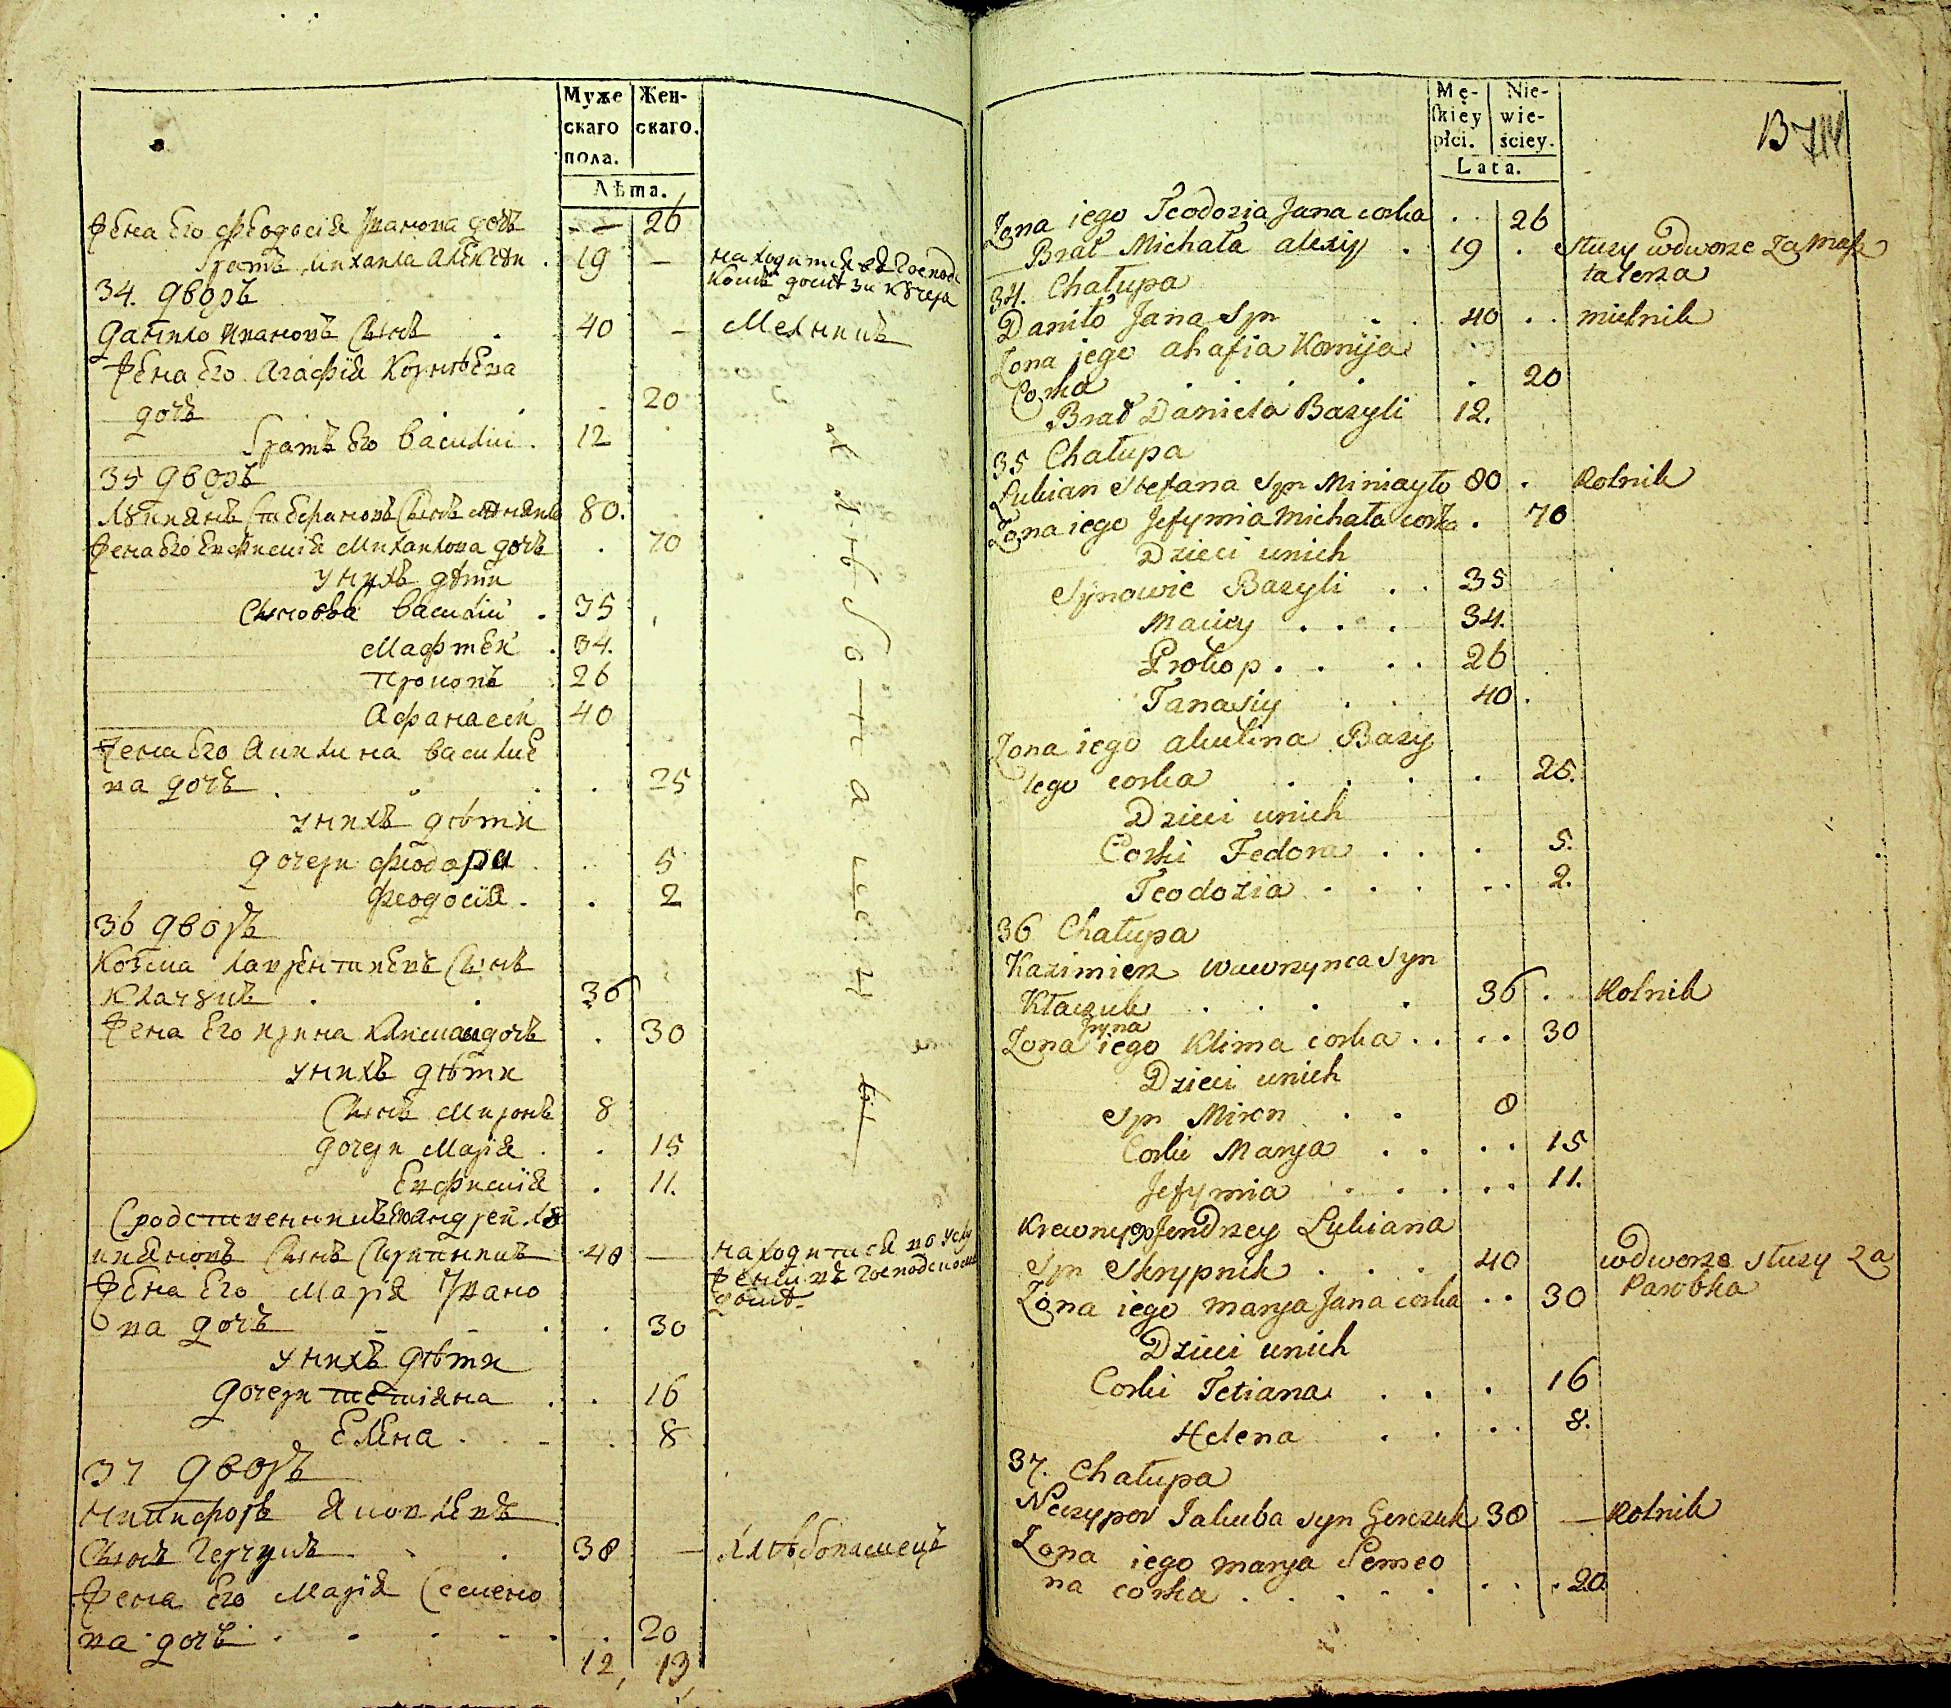 Муже
скаго
пола.
Жен-
скаго.
Лѣта.
Жена Его Феодосія Иванова дочъ — 26
Братъ Михаила Алексѣи . 19 — находится въ Господ
скомъ домѣ за кучера
34. дворъ
Данило Ивановъ Сынъ . 40 — Мелникъ
Жена Его Агафія Корнѣева
дочъ . . 20
Братъ Его Василій . 12
35 дворъ
Лукіянъ Стефановъ Сынъ 80.
Жена Его Евфимія Михаилова дочъ . 70
У нихъ дѣти
Сыновья Василій . 35
Мафтей . 34.
Прокопъ 26
Афанасей 40
Жена Его Акилина Василие
ва дочъ . . . . 25
У нихъ дѣти
дочери Феодора . . 5
Феодосія . . 2
36 дворъ
Козма Лаврентиевъ Сынъ
Клачукъ . . 36
Жена Его Ирина Климова дочъ . 30
У нихъ дѣти
Сынъ Миронъ 8
дочери Марія . . 15
Евфимія . 11.
Сродственникъ Его Андрей Лу
кияновъ Сынъ Скрипникъ 40 — находится в услу
Жена Его Марія Ивано
женіи въ Господском
домѣ
ва дочъ . . 30
У нихъ дѣти
дочери Тетіяна . . 16
Елена . . 8
37 дворъ
Никифоръ Яковлевъ
Сынъ Герчукъ . . 38 — Хлѣбопашецъ
Жена Его Марія Семено
ва дочъ . . . . . 20
12, 13,
Хлѣбопашецъ
Mę-
skiey
płci.
Nie-
wie-
ściey.
Lata.
13 714
Zona iego Teodozia Jana corka . . 26
Brat Michała alexiy . 19 . słuzy wdworze za
talerza
34. Chałupa
Daniło Jana Syn . . 40 . . mielnik
Zona jego ahafia Kornija
Corka . . . . 20
Brat Daniela Bazyli 12.
35 Chałupa
Lukian Stefana Syn Miniayło 80 . Rolnik
Zona iego Jefymia Michała corka . 70
Dzieci unich
Synowie Bazyli . . 35
Maciey . . . 34.
Prokop . . . . 26
Tanasiy . . 40 .
Zona iego akulina Bazy
lego corka . . . . 25.
Dzieci unich
Corki Fedora . . . 5.
Teodozia . . . . . 2.
36 Chałupa
Kazimierz Wawrzynca Syn
Kłaczuk . . . . 36 . Rolnik
Jryna
Zona iego Klima corka . . . . 30
Dzieci unich
Syn Miron . . 8
Corki Marya . . . . 15
Jefymia . . . . . . 11.
Krewny Jendrzey Lukiana
Syn Skrypnik . . . 40 wdworze słuzy za
Parobka
Zona iego marya Jana corka . . 30
Dzieci unich
Corki Tetiana . . . 16
Helena . . . . 8.
37. Chałupa
Neczypor Jakuba syn Gerczuk 38 — Rolnik
Zona iego marya Semeo
na corka . . . . . . . . 20